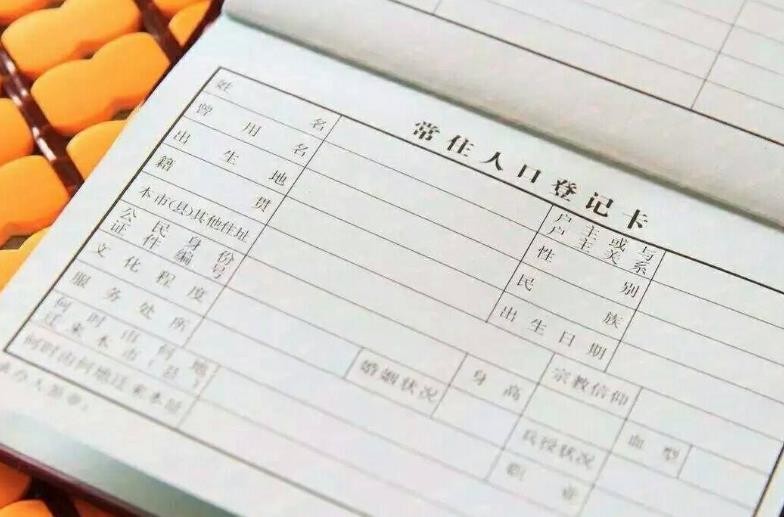 常住人口登记卡
姓名
户主或与户主关系
曾用名
性别
出生地
民族
籍贯
出生日期
本市(县)其他住址
宗教信仰
公民身份证件编号
身高
血型
文化程度
婚姻状况
兵役状况
服务处所
职业
何时由何地迁来本市(县)
何时由何地迁来本址